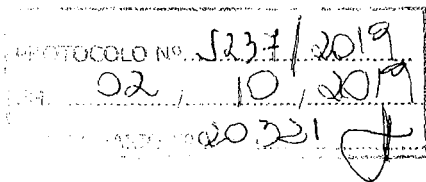 PROTOCOLO Nº 5237/2019
02 / 10 / 2019
20321